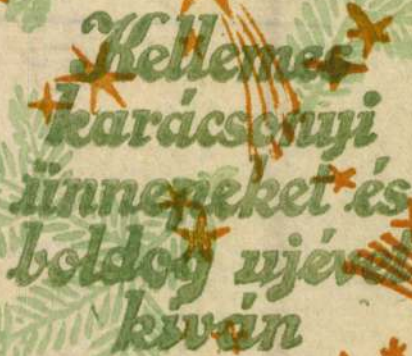 Kellemes
karácsonyi
ünnepeket és
boldog ujévet
kíván